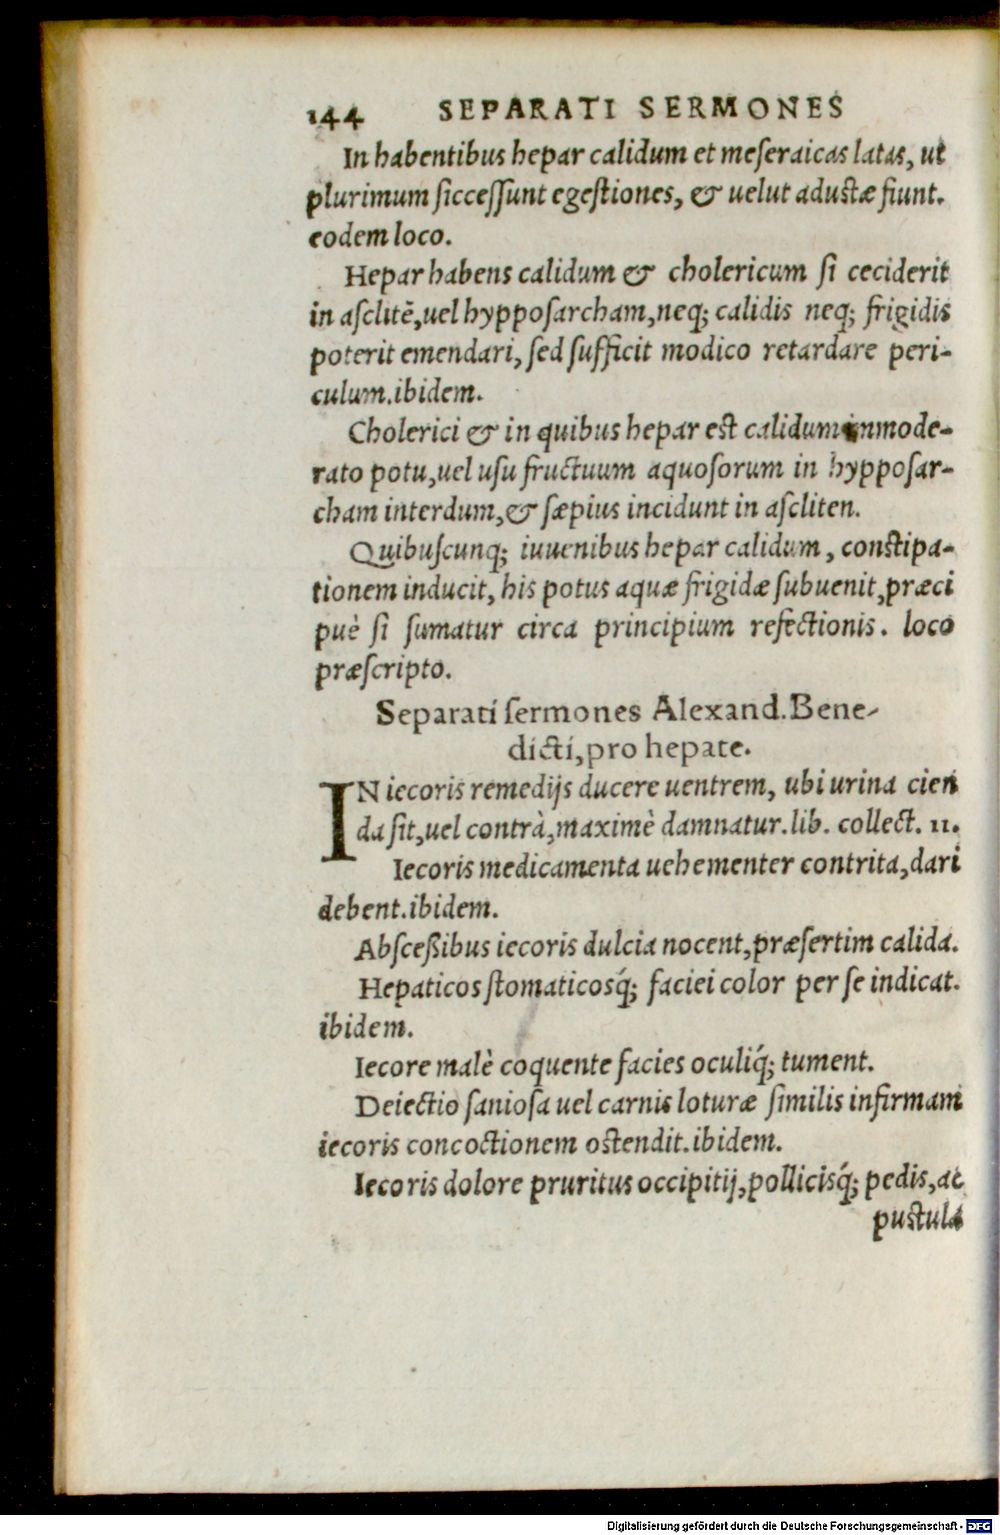 144 SEPARATI SERMONES
In habentibus hepar calidum et meseraicas latas, ut
plurimum siccessunt egestiones, & uelut adustæ fiunt.
eodem loco.
Hepar habens calidum & cholericum si ceciderit
in asclitẽ, uel hypposarcham, neq; calidis neq; frigidis
poterit emendari, sed sufficit modico retardare peri-
culum. ibidem.
Cholerici & in quibus hepar est calidum inmode-
rato potu, uel usu fructuum aquosorum in hypposar-
cham interdum, & sæpius incidunt in ascliten.
Quibuscunq; iuuenibus hepar calidum, constipa-
tionem inducit, his potus aquæ frigidæ subuenit, præci
puè si sumatur circa principium refectionis. loco
præscripto.
Separati sermones Alexand. Bene-
dicti, pro hepate.
IN iecoris remedijs ducere uentrem, ubi urina cien
da sit, uel contrà, maximè damnatur. lib. collect. 11.
Iecoris medicamenta uehementer contrita, dari
debent. ibidem.
Absceßibus iecoris dulcia nocent, præsertim calida.
Hepaticos stomaticosq́; faciei color per se indicat.
ibidem.
Iecore malè coquente facies oculiq́; tument.
Deiectio saniosa uel carnis loturæ similis infirmam
iecoris concoctionem ostendit. ibidem.
Iecoris dolore pruritus occipitij, pollicisq́; pedis, ac
pustula
Digitalisierung gefördert durch die Deutsche Forschungsgemeinschaft - DFG